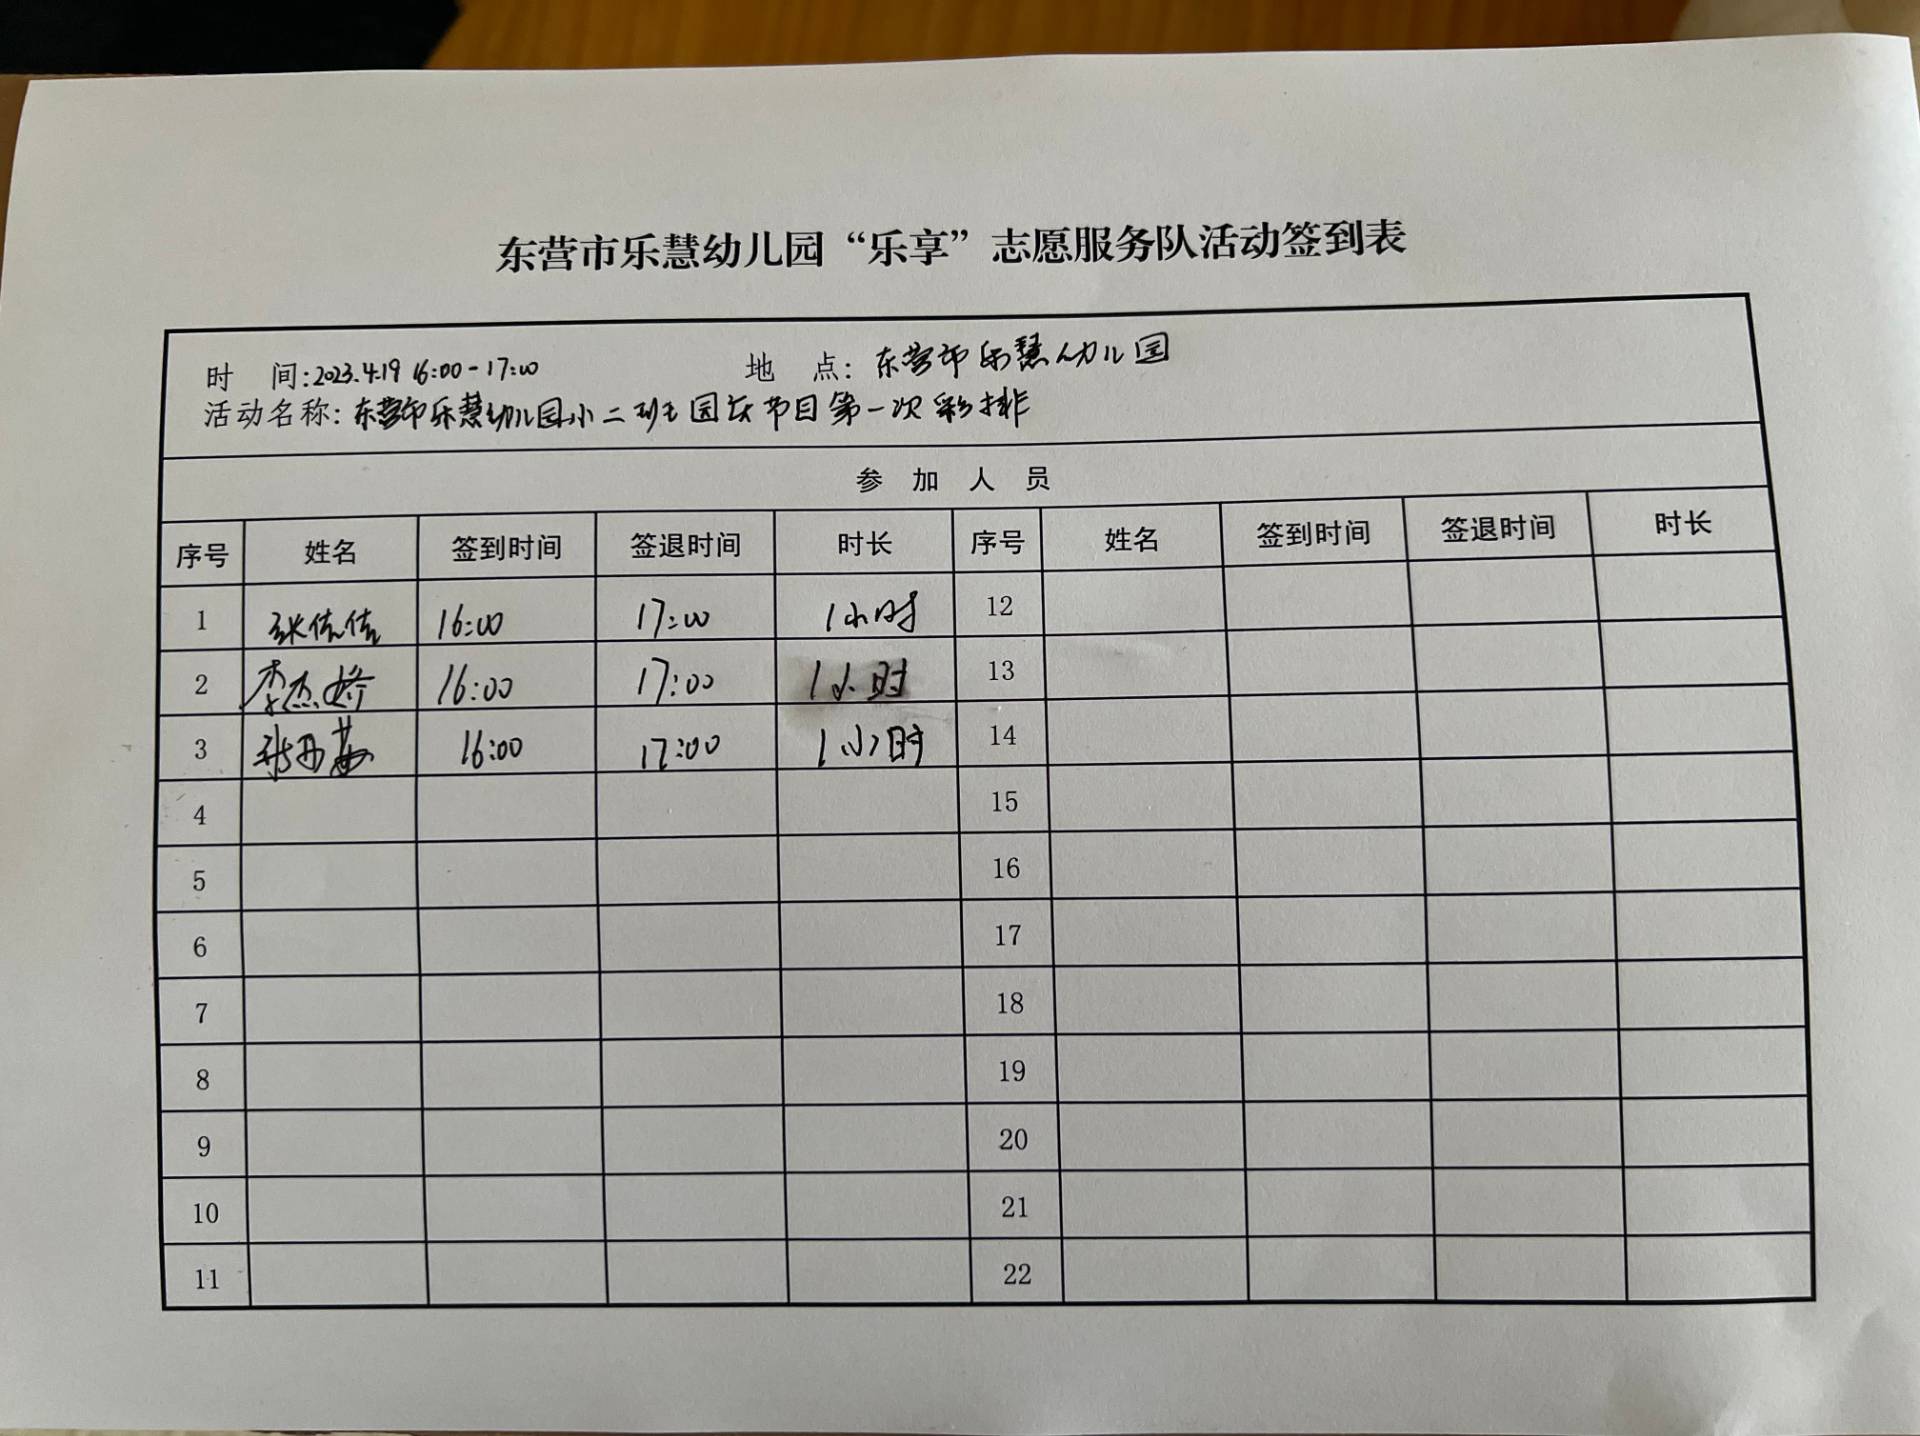 东营市乐慧幼儿园“乐享”志愿服务队活动签到表
时 间:2023.4.19 16:00-17:00 地 点:东营市乐慧幼儿园
活动名称:东营市乐慧幼儿园小二班园庆节目第一次彩排
参 加 人 员
序号 姓名 签到时间 签退时间 时长 序号 姓名 签到时间 签退时间 时长
1 张佳佳 16:00 17:00 1小时 12
2 李杰婷 16:00 17:00 1小时 13
3 16:00 17:00 1小时 14
4 15
5 16
6 17
7 18
8 19
9 20
10 21
11 22